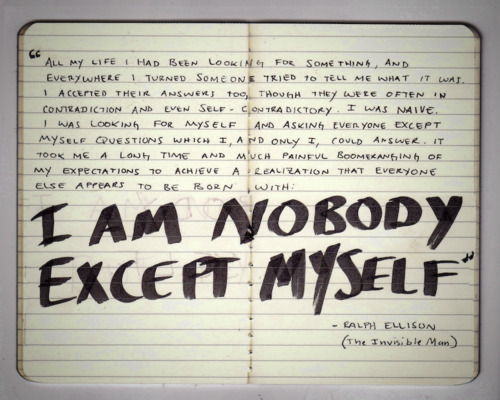 “ALL MY LIFE I HAD BEEN LOOKING FOR SOMETHING, AND
EVERYWHERE I TURNED SOMEONE TRIED TO TELL ME WHAT IT WAS.
I ACCEPTED THEIR ANSWERS TOO, THOUGH THEY WERE OFTEN IN
CONTRADICTION AND EVEN SELF-CONTRADICTORY. I WAS NAIVE.
I WAS LOOKING FOR MYSELF AND ASKING EVERYONE EXCEPT
MYSELF QUESTIONS WHICH I, AND ONLY I, COULD ANSWER. IT
TOOK ME A LONG TIME AND MUCH PAINFUL BOOMERANGING OF
MY EXPECTATIONS TO ACHIEVE A REALIZATION THAT EVERYONE
ELSE APPEARS TO BE BORN WITH:
I AM NOBODY
EXCEPT MYSELF”
- RALPH ELLISON
(The Invisible Man)